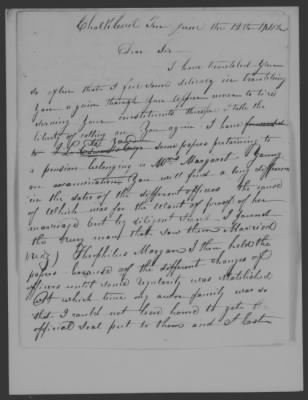 Chalklevel Ten June the 19th 1842
Dear Sir
I have troubled you
so often that I feel some delicacy in troubling
you again though you appear never to tire
serving your constituents therefore take the
liberty of calling on you again I have
to some papers pertaining to
a pension belonging to Mrs Margaret Young
on examination you will find a long difference
in the dates of the different officers the cause
of which was for the want of proof of her
marriage but by diligent search I found
the very man that saw them Married
Theophilus Morgan I then held the
papers because of the different changes of
officers until some regularity was established
at which time my own family was so
that I could not leave home to get the
official seal put to them and at last